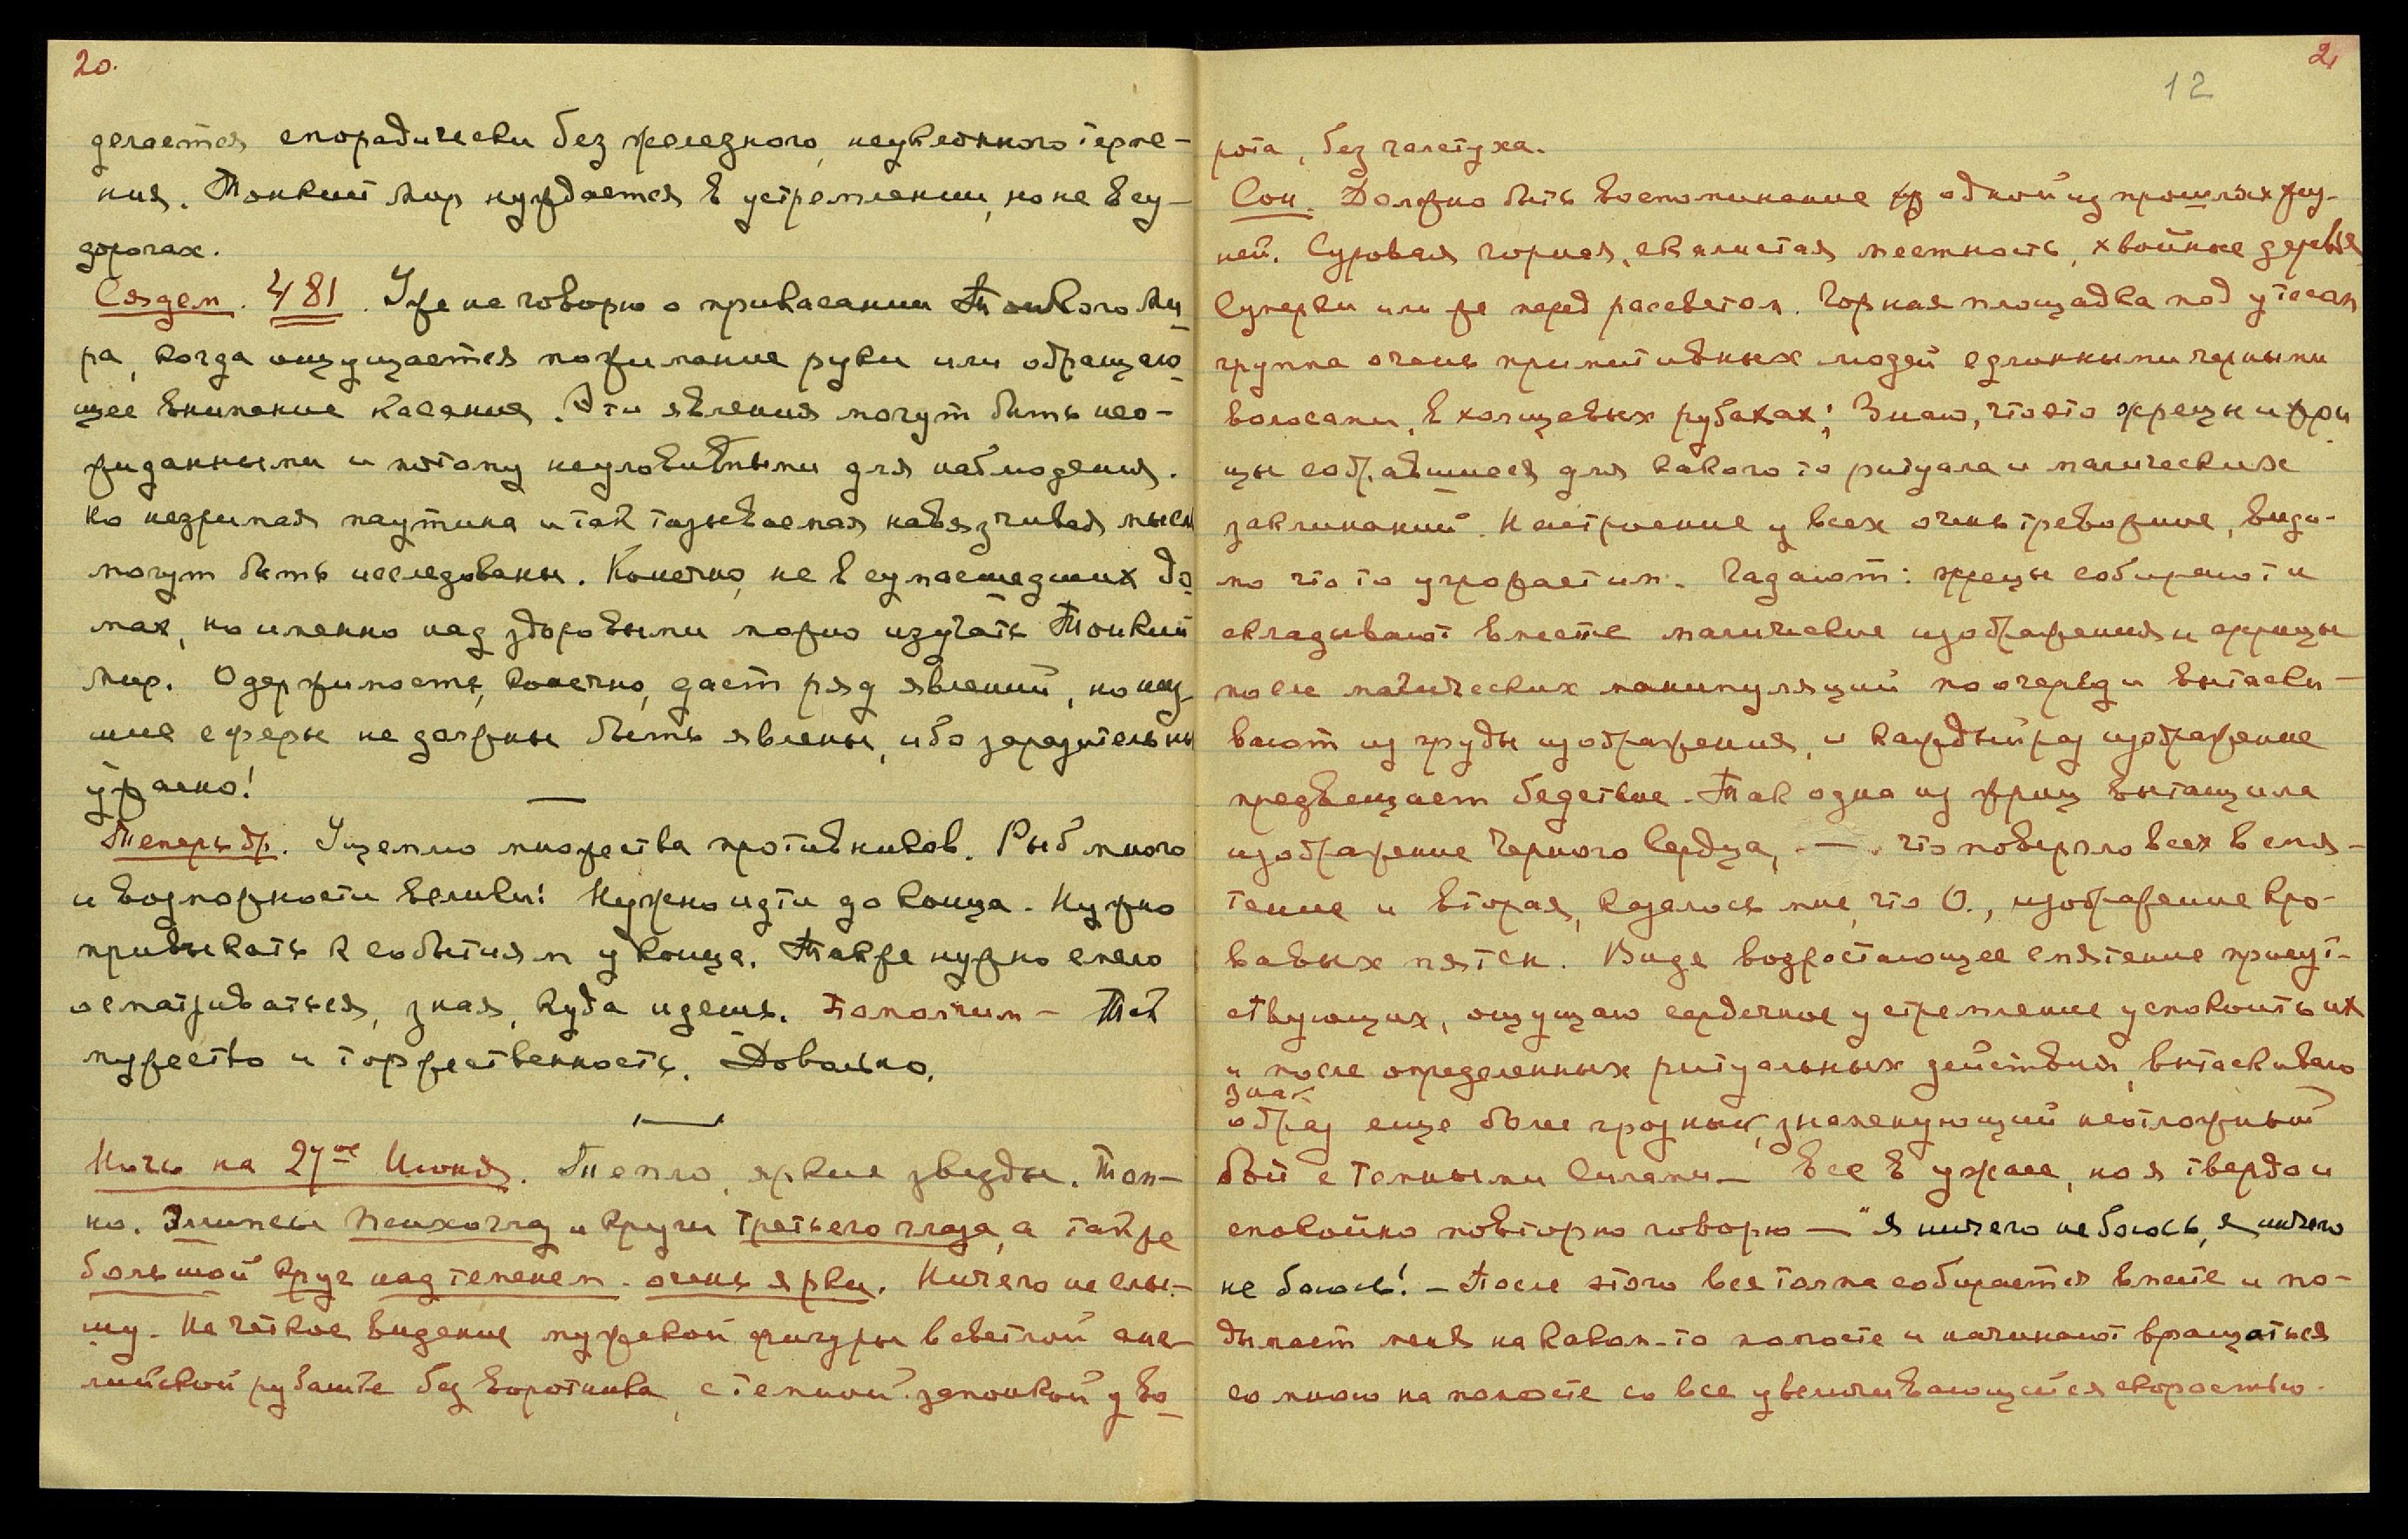 20.
делается спорадически без железного, неуклонного терпе-
ния. Тонкий Мир нуждается в устремлении, но не в су-
дорогах.
Сядем. 481. Уже не говорю о прикасании Тонкого Ми-
ра, когда ощущается пожимание руки или обращаю-
щее внимание касание. Эти явления могут быть нео-
жиданными и потому неуловимыми для наблюдения.
Но незримая паутина и так называемая навязчивая мысль
могут быть исследованы. Конечно, не в сумасшедших до-
мах, но именно над здоровыми можно изучать Тонкий
Мир. Одержимость, конечно, дает ряд явлений, но низ-
шие сферы не должны быть явлены, ибо заразительны
ужасно!
Теперь др. Ущемлю множества противников. Рыб много
и возможности велики! Нужно идти до конца. Нужно
привыкать к событиям у конца. Также нужно смело
осматриваться, зная, куда идешь. Помолчим —
мужество и торжественность. Довольно.
Ночь на 27ое Июня. Тепло, яркие звезды. Том-
но. Эллипсы психоглаз и круги третьего глаза, а также
большой круг над теменем - очень ярки. Ничего не слы-
шу. Не четкое видение мужской фигуры в светлой анг-
лийской рубашке без воротника, с темной запонкой у во-
21
12
рота, без галстуха.
Сон. Должно быть воспоминание из одной из прошлых жиз-
ней. Суровая горная, скалистая местность, хвойные деревья
Сумерки или же перед рассветом. Горная площадка под утесом
группа очень примитивных людей с длинными черными
волосами, в холщевых рубахах; Знаю, что это жрецы и жри
цы собравшиеся для какого то ритуала и магических
заклинаний. Настроение у всех очень тревожное, види-
мо что то угрожает им. Гадают: жрецы собирают и
складывают вместе магические изображения и жрицы
после магических манипуляций по очереди вытаски-
вают из груды изображения, и каждый раз изображение
предвещает бедствие. Так одна из жриц вытащила
изображение Черного Сердца, — что повергло всех в смя-
тение и вторая, казалось мне, что О., изображение кро-
вавых пятен. Видя возростающее смятение присут-
ствующих, ощущаю сердечное устремление успокоить их
и после определенных ритуальных действий, вытаскиваю
знак
образ еще более грозный, знаменующий неотложный
бой с Темными Силами — Все в ужасе, но я твердо и
спокойно повторно говорю — "я ничего не боюсь, я ничего
не боюсь! — После этого вся толпа собирается вместе и по-
дымает меня на каком-то помосте и начинают вращаться
со мною на помосте со все увеличивающейся скоростью.